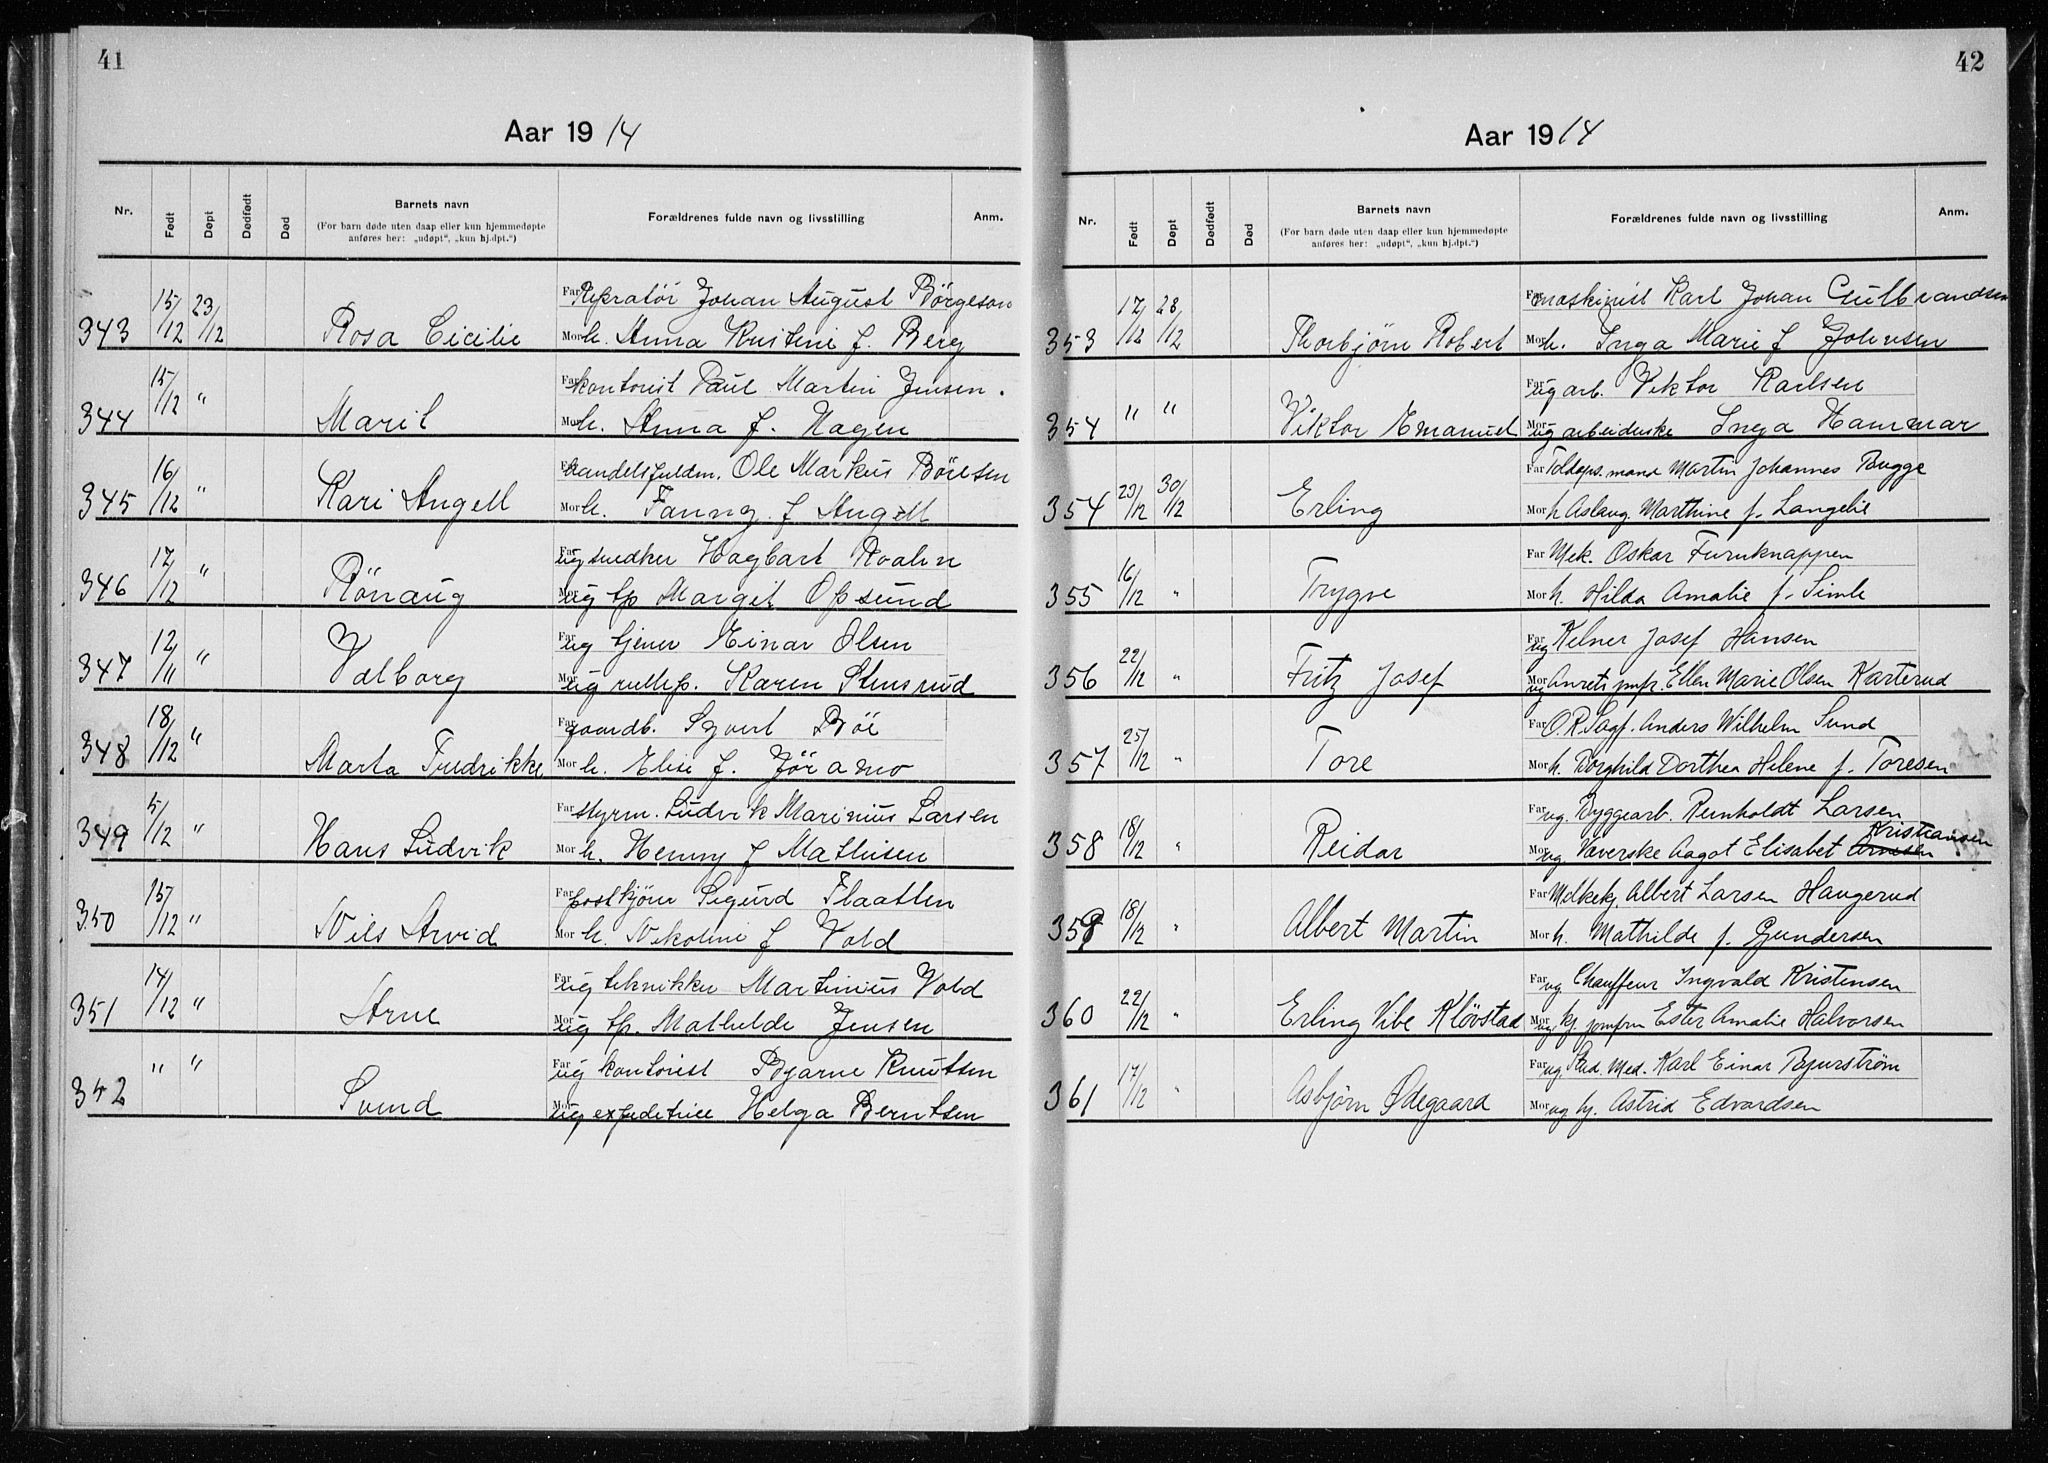 41
Aar 1914
Nr. Født Døpt Dødfødt Død Barnets navn Forældrenes fulde navn og livsstilling Anm.
(For barn døde uten daap eller kun hjemmedøpte
anføres her: „udøpt“, „kun hj.dpt.“)
Far Johan August Börgeson
343 15/12 23/12 Rosa Cicilie Mor h. Anna Kristine f. Berg
Far kontorist Paul Martin Jensen.
344 15/12 " Marit Mor h. Anna f. Hagen
Far handelsfuldm. Ole Markus Böresen
345 16/12 " Kari Angell Mor h. Fanny f Angell
Far ug snedker Hagbart
346 17/12 " Rönaug Mor ug tp Margit Opsund
Far ug tjener Einar Olsen
347 12/11 " Valborg Mor ug rullep. Karen Stensrud
Far gaardb. Syvert Böe
348 18/12 " Marta Fredrikke Mor h. Elise f. Jöramo
Far styrm. Ludvik Marinius Larsen
349 5/12 " Hans Ludvik Mor h. Henny f Mathisen
Far postkjörer Sigurd Flaatten
350 15/12 " Nils Arvid Mor h. Nikoline f Vold
Far ug tekniker Martinius Vold
351 14/12 " Arne Mor ug tp. Mathilde Jensen
Far ug kontorist Bjarne Knutsen
342 " " Svend Mor ug expeditrice Helga Berntsen
42
Aar 1914
Nr. Født Døpt Dødfødt Død Barnets navn Forældrenes fulde navn og livsstilling Anm.
(For barn døde uten daap eller kun hjemmedøpte
anføres her: „udøpt“, „kun hj.dpt.“)
Far maskinist Karl Johan Gulbrandsen
353 17/12 28/12 Thorbjørn Robert Mor h. Inga Marie f Johnsen
Far ug arb. Viktor Karlsen
354 " " Viktor Emanuel Mor ug arbeiderske Inga Hammar
Far Toldops.mand Martin Johannes Bugge
354 23/12 30/12 Erling Mor h Aslaug Marthine f. Langelie
Far Mek. Oskar Furuknappen
355 16/12 " Trygve Mor h. Hilda Amalie f. Simle
Far ug Kelner Josef Hansen
356 22/12 " Fritz Josef Mor ug Anretsjmfr. Ellen Marie Olsen Karterud
Far O.R.Sagf. Anders Wilhelm Sund
357 25/12 " Tore Mor h. Borghild Dorthea Helene f. Toresen
Far ug. Byggearb. Reinholdt Larsen
Kristiansen
358 18/12 " Reidar Mor ug Væverske Aagot Elisabet Arnesen
Far Melkekj. Albert Larsen Haugerud
359 18/12 " Albert Martin Mor h. Mathilde f. Gundersen
Far ug Chauffeur Ingvald Kristensen
360 22/12 " Erling Vibe Kløvstad Mor ug kj. jomfru Ester Amalie Halvorsen
Far ug. Stud. Med. Karl Einar Bjurström
361 17/12 " Asbjørn Ødegaard Mor ug hj. Astrid Edvardsen